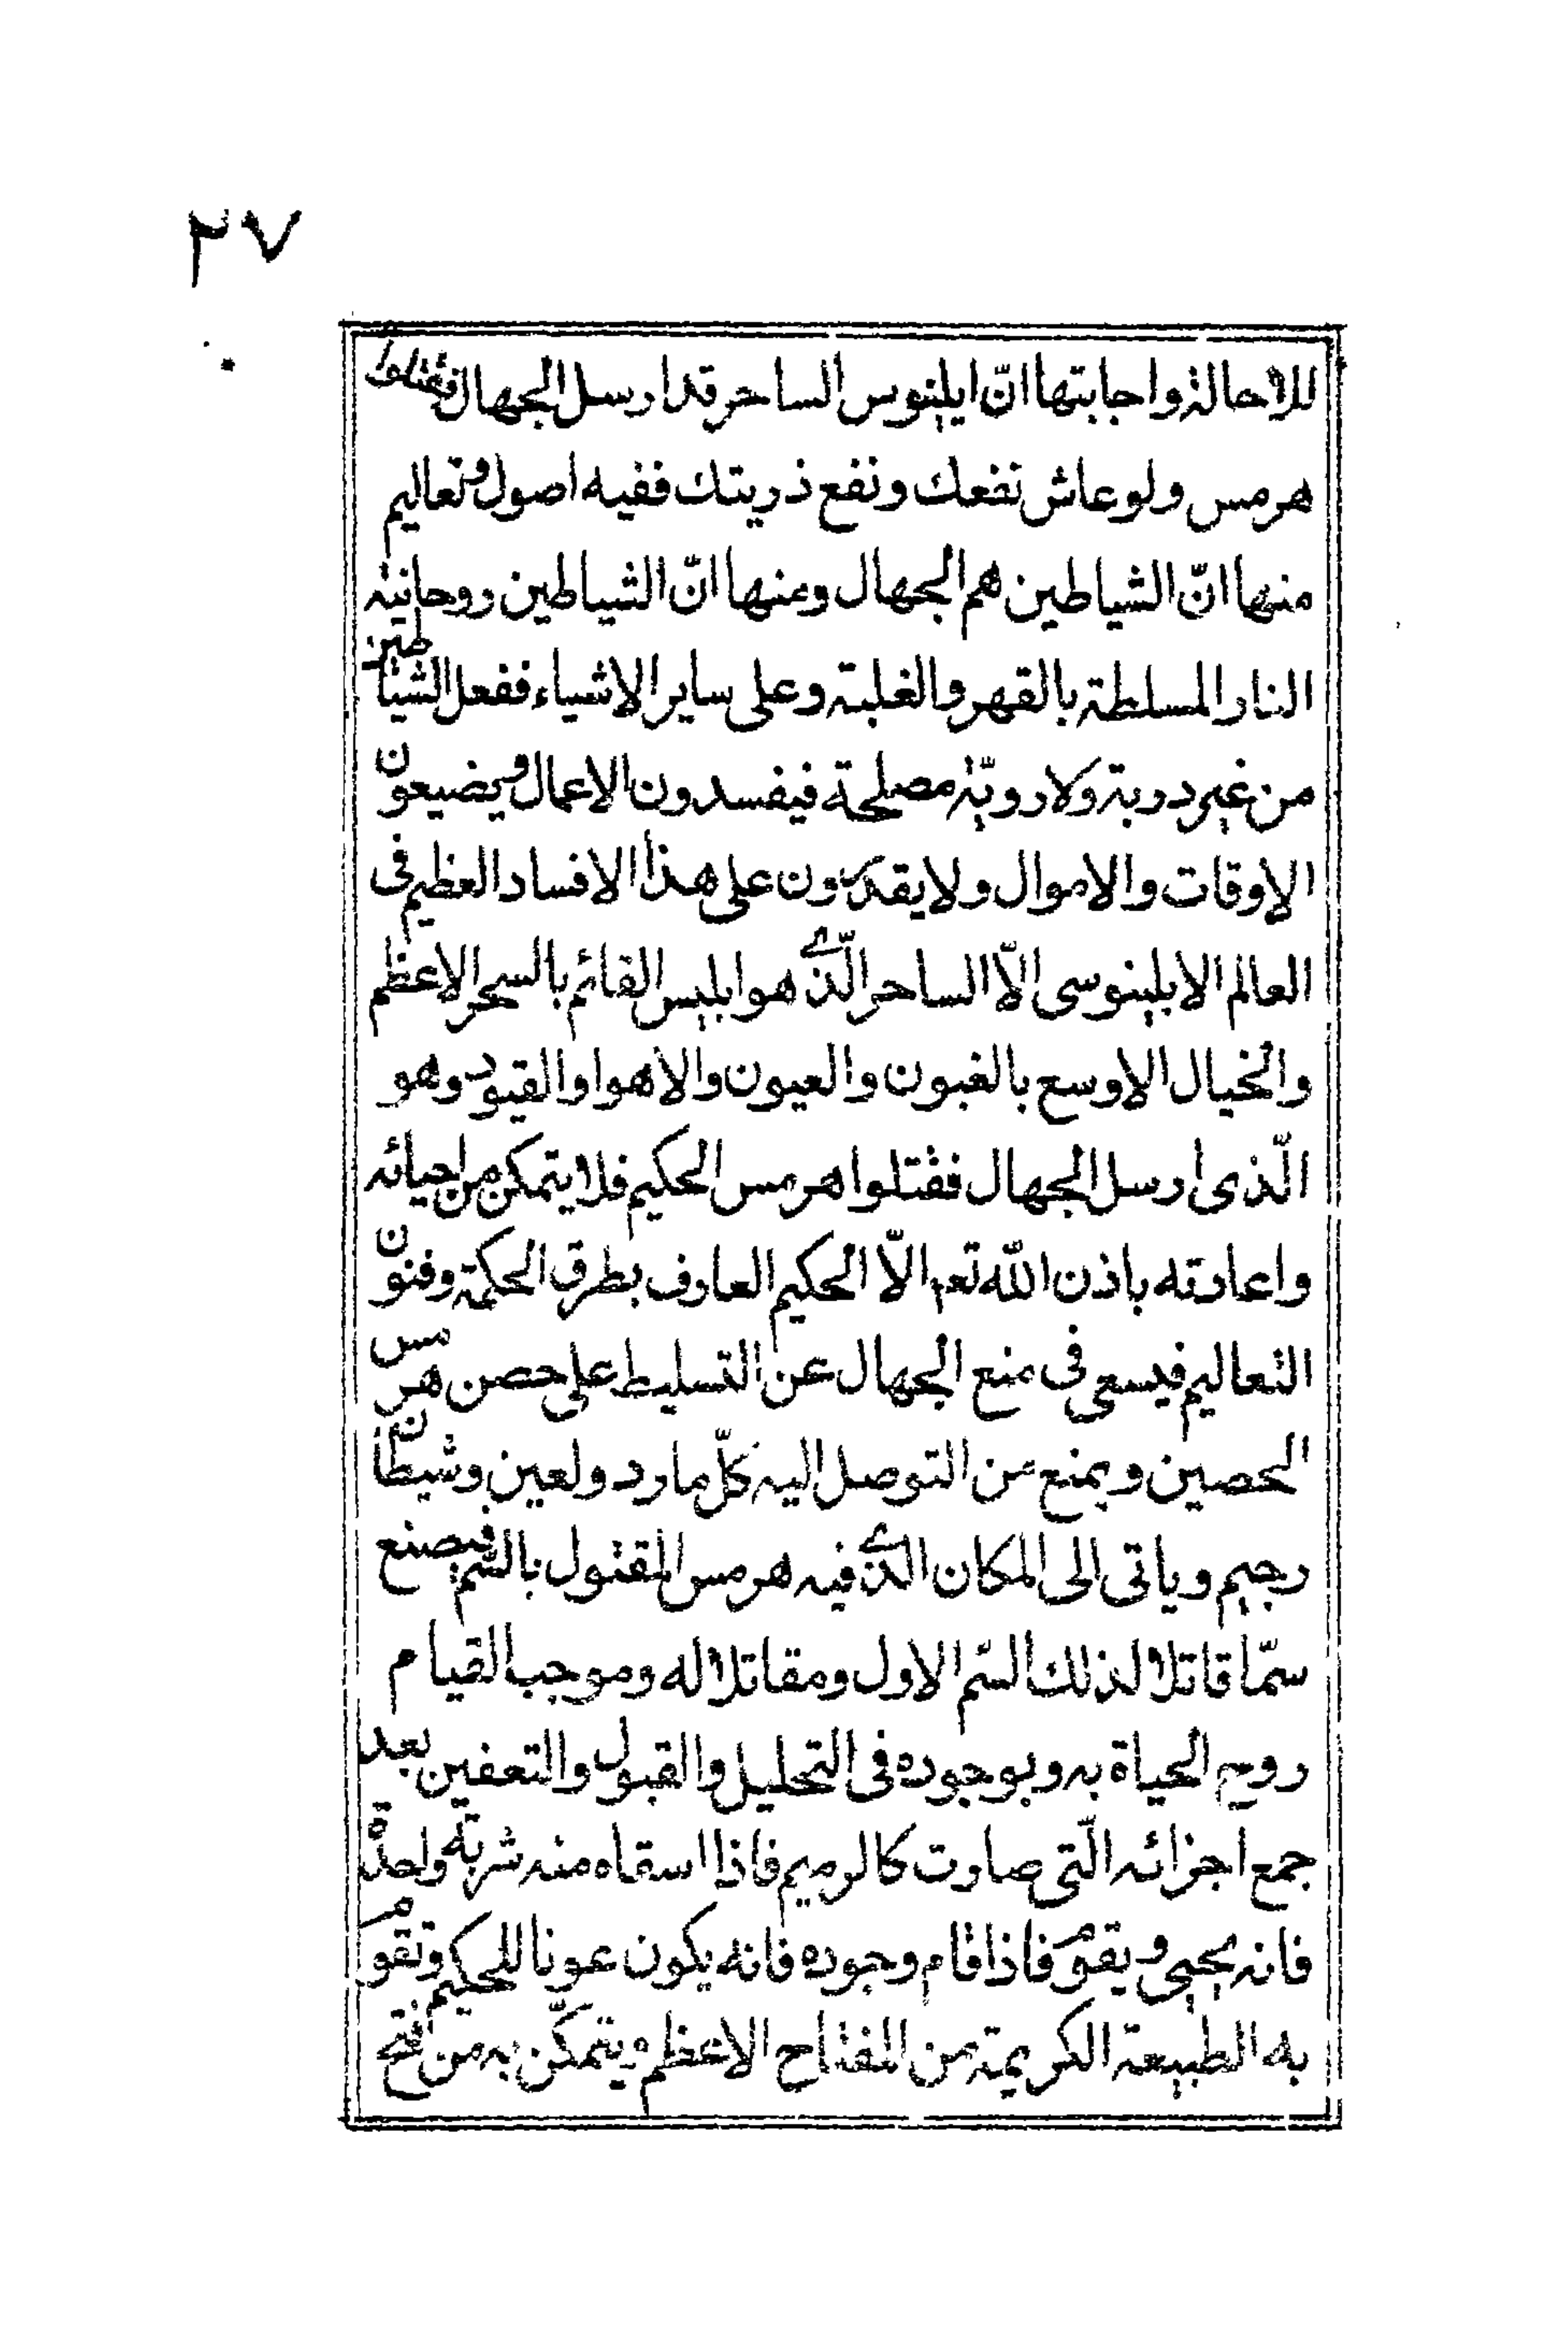 ٢٧
للاحالة واجابتها انّ ايلينوس الساحر قد ارسل الجهال فقتلوا
هرمس ولو عاش نفعك ونفع ذريتك ففيه اصول وتعاليم
منها انّ الشياطين هم الجهال ومنها انّ الشياطين روحانية
النار المسلطة بالقهر والغلبة وعلى ساير الاشياء ففعل الشياطين
من غير دربة ولا رويّة مصلحة فيفسدون الاعمال ويضيعون
الاوقات والاموال ولا يقدرون على هذا الافساد العظيم فى
العالم الابلينوسى الّا الساحر الّذى هو ابليس القائم بالسحر الاعظم
والخيال الاوسع بالغبون والعيون والاهوا والقيود وهو
الّذى ارسل الجهال فقتلوا هرمس الحكيم فلا يتمكن من احيائه
واعادته باذن اللّه تعـ الّا الحكيم العارف بطرق الحكمة وفنون
التعاليم فيسعى فى منع الجهال عن التسليط على حصن هرمس
الحصين ويمنع من التوصل اليه كلّ مارد ولعين وشيطان
رجيم وياتى الى المكان الذى فيه هرمس المقتول بالسّم فيصنع
سمّا قاتلا لذلك السّم الاول ومقاتلا له وموجب القيام
روح الحياة به وبوجوده فى التحليل والقبول والتعفين بعد
جمع اجزائه الّتى صارت كالرميم فاذا اسقاه منه شربة واحدة
فانه يحيى ويقوم فاذا قام وجوده فانه يكون عونا للحكيم وتقوم
به الطبيعة الكريمة من المفتاح الاعظم ويتمكّن به من فتح